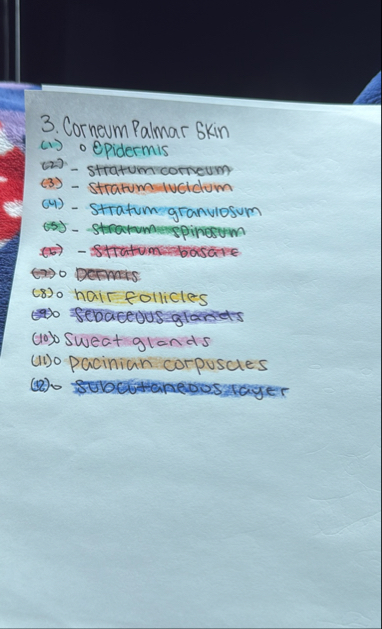 3. Corneum Palmar Skin
(1) o Epidermis
(2) - stratum corneum
(3) - stratum lucidum
(4) - stratum granulosum
(5) - stratum spinosum
(6) - stratum basale
(7) o Dermis
(8) o hair follicles
(9) o sebaceous glands
(10) o sweat glands
(11) o pacinian corpuscles
(12) o subcutaneous layer